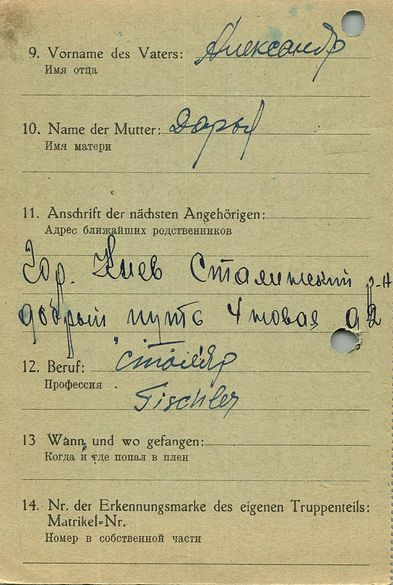 9. Vorname des Vaters: Александр
Имя отца
10. Name der Mutter: Дарья
Имя матери
11. Anschrift der nächsten Angehörigen:
Адрес ближайших родственников
Гор. Киев Сталинский р-н
добрый путь 4 новая д 2
12. Beruf: столяр
Профессия
Tischler
13 Wann und wo gefangen:
Когда и где попал в плен
14. Nr. der Erkennungsmarke des eigenen Truppenteils:
Matrikel-Nr.
Номер в собственной части